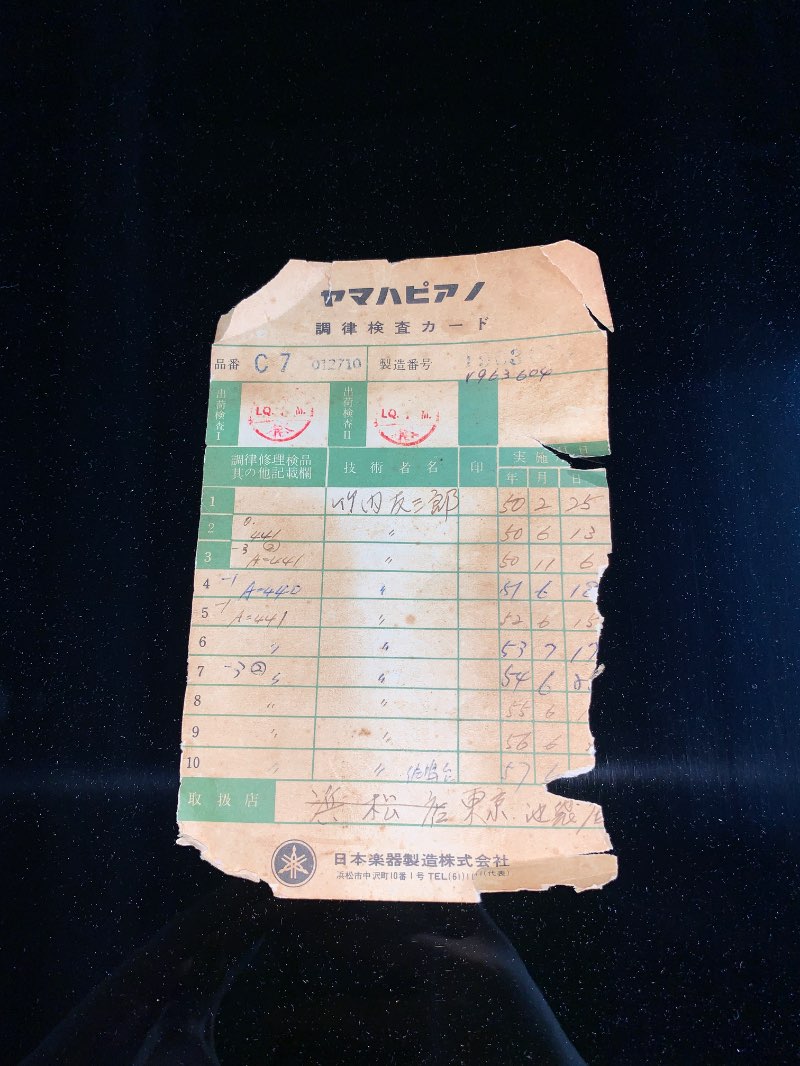 ヤマハピアノ
調律検査カード
品番 C7 012710 製造番号
1963604
出荷検査I LQ. 出荷検査II LQ.
調律修理検品 其の他記載欄 技術者名 印 実施 日
年 月 日
1 竹内友三郎 50 2 25
2 0. 441 〃 50 6 13
3 -3 ② A=441 〃 50 11 6
4 -1 A=440 〃 51 6
5 -1 A=441 〃 52 6 15
6 〃 〃 53 7 17
7 -3 ② 〃 〃 54 6
8 〃 〃 55 6
9 〃 〃 56 6
10 〃 〃 57 6
取扱店 浜松店 東京 池袋
日本楽器製造株式会社
浜松市中沢町10番1号 TEL(61) (代表)